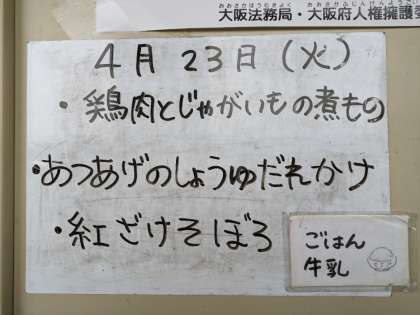 おおさかほうむきょく おおさかふじんけんようご
大阪法務局・大阪府人権擁護
4月 23日(火)
・鶏肉とじゃがいもの煮もの
・あつあげのしょうゆだれかけ
・紅ざけそぼろ
ごはん
牛乳